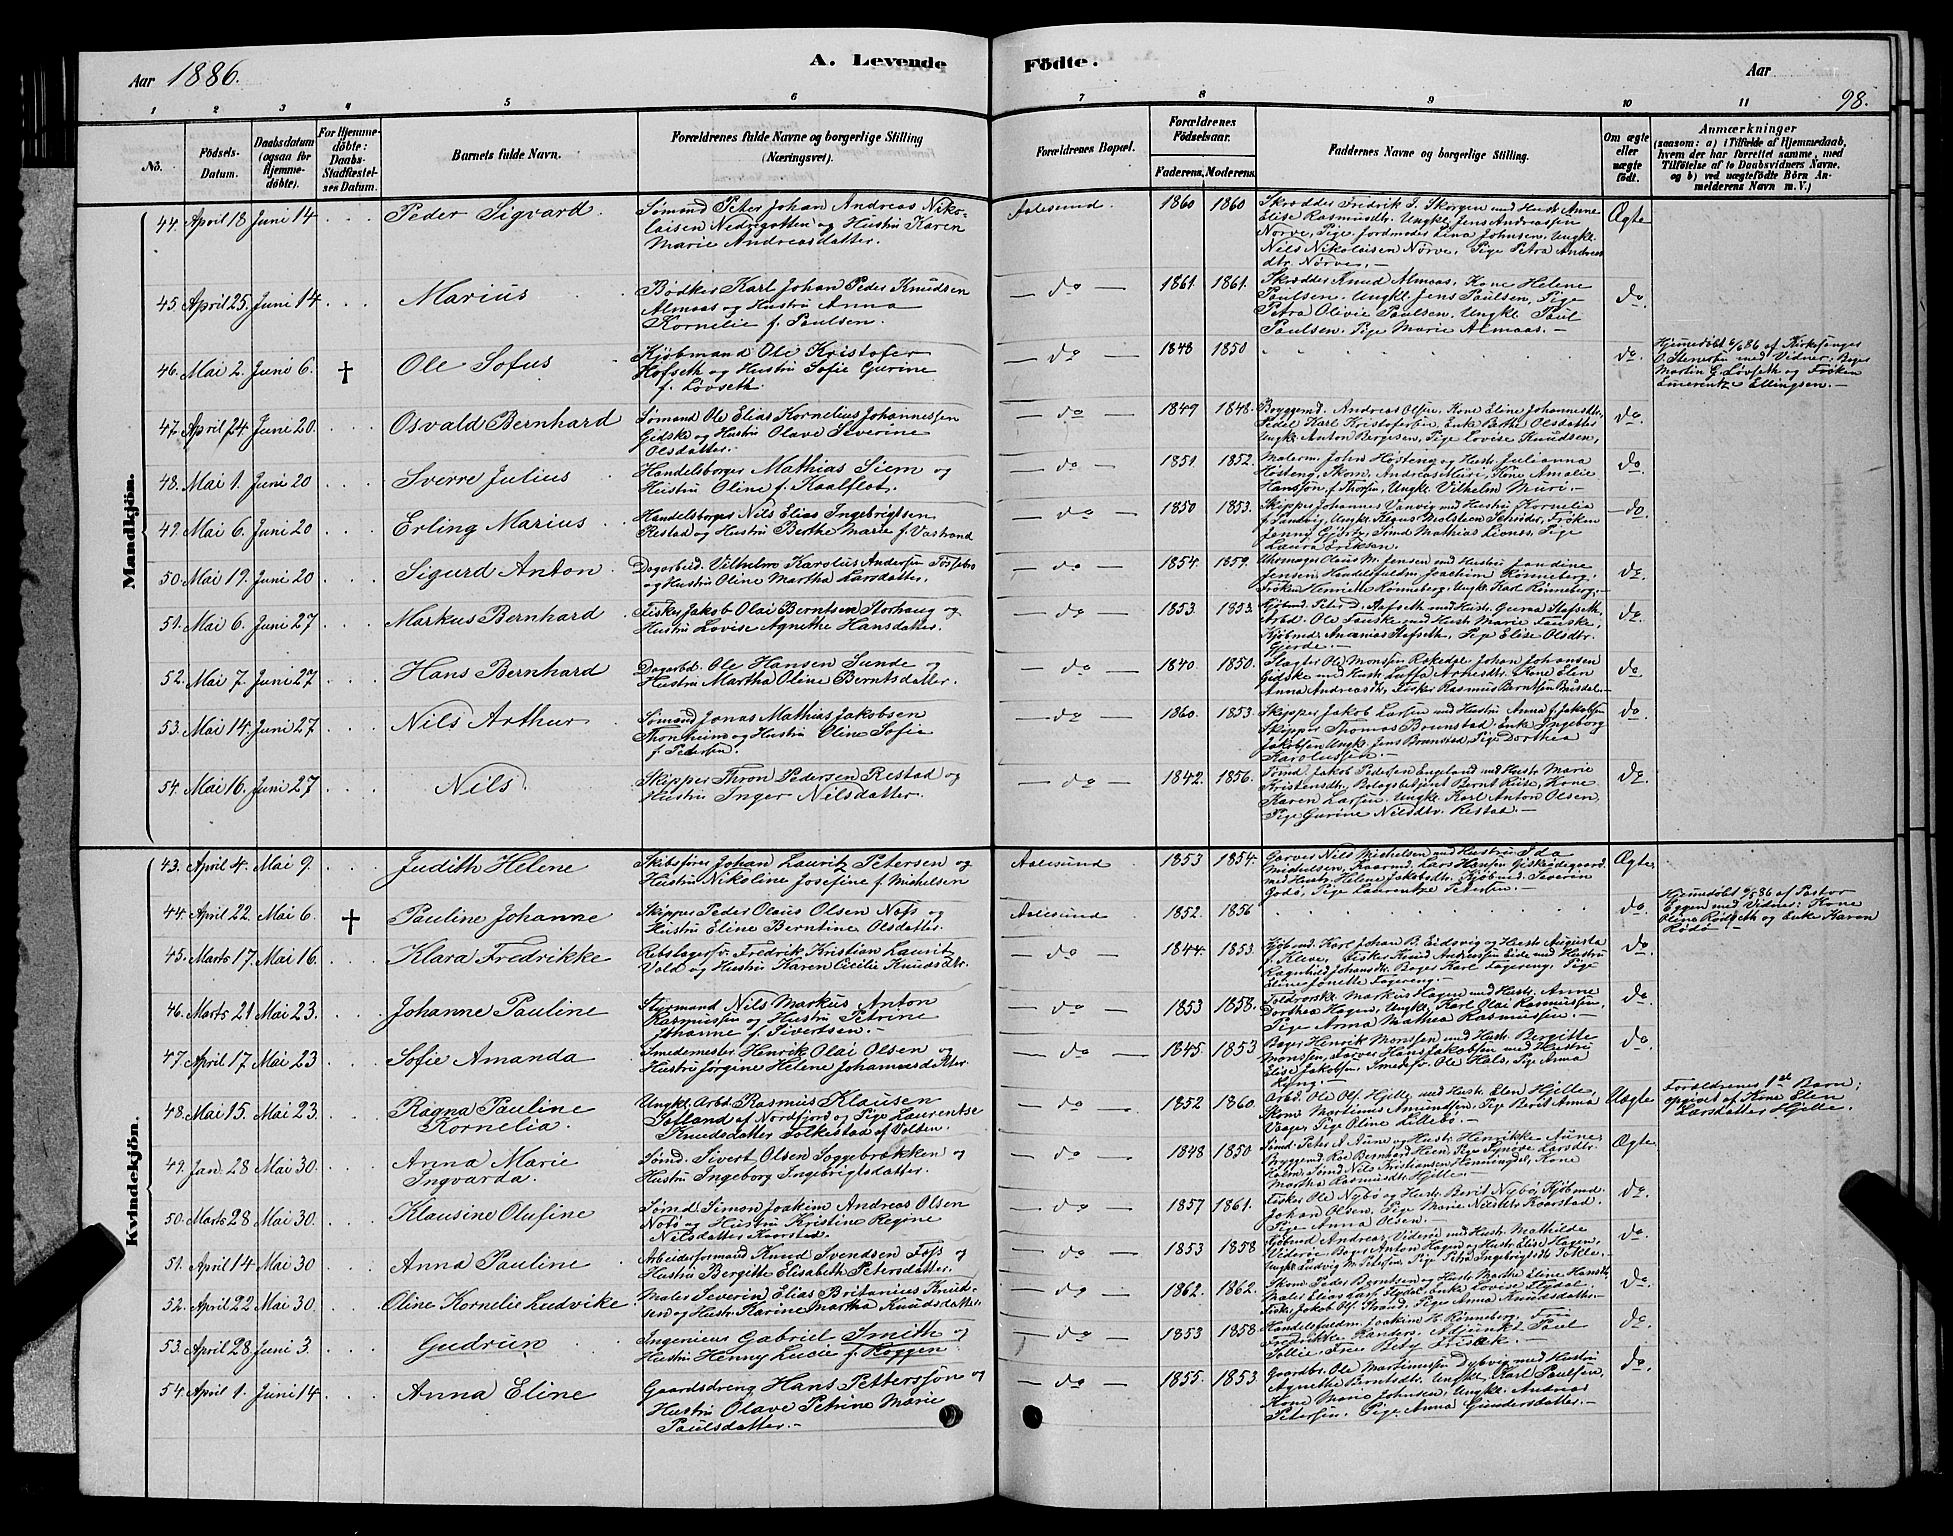 Aar 1886.
A. Levende Födte.
Aar
98.
1 2 3 4 5 6 7 8 9 10 11
No.
Födsels-Datum.
Daabsdatum (ogsaa for Hjemme-döbte).
For Hjemme-döbte: Daabs-Stadfæstel-ses Datum.
Barnets fulde Navn.
Forældrenes fulde Navne og borgerlige Stilling (Næringsvei).
Forældrenes Bopæl.
Forældrenes Födselsaar.
Faderens. Moderens.
Faddernes Navne og borgerlige Stilling.
Om ægte eller uægte födt.
Anmærkninger
(saasom: a) i Tilfælde af Hjemmedaab,
hvem der har forrettet samme, med
Tilföielse af to Daabsvidners Navne,
og b) ved uægtefödte Börn An-
melderens Navn m. V.)
Mandkjön.
44. April 18 Juni 14 Peder Sigvard. Sømand Peter Johan Andreas Niko-
laisen Nedregotten og Hustru Karen
Marie Andreasdatter. Aalesund. 1860 1860 Skrædder Fredrik J. Skorgen med Hustr. Anne
Elise Rasmusdtr. Ungkl. Jens Andreassen
Nørve, Pige Jordmoder Lina Johnsen, Ungkl.
Nils Nikolaisen Nørve, Pige Petra Andreas
dtr. Nørve. Ægte
45. April 25. Juni 14 Marius Bødker Karl Johan Peder Knudsen
Almaas og Hustru Anna
Kornelie f. Paulsen. do 1861. 1861. Skrædder Knud Almaas, Kone Helene
Paulsen. Ungkl. Jens Paulsen, Pige
Petra Olivie Paulsen. Ungkl. Paul
Paulsen. Pige Marie Almaas. do.
46. Mai 2. Juni 6. † Ole Sofus Kjøbmand Ole Kristofer
Hofseth og Hustru Sofie Gurine
f. Løvseth. do 1848 1850 do. Hjemmedøbt 6/6 86 af Kirkesanger
O. Stenersen med Vidner: Bager
Martin G. Løvseth og Frøken
Emerentze Ellingsen.
47. April 24 Juni 20. Osvald Bernhard Sømand Ole Elias Kornelius Johannessen
Gidske og Hustru Olave Severine
Olsdatter. do 1849 1848. Byggemd. Andreas Olsen, Kone Eline Johannesdtr.
Pedel Karl Kristofersen, Enke Berthe Olsdatter
Ungkl. Anton Børgesen, Pige Lovise Knudsen, do.
48. Mai 1. Juni 20 Sverre Julius Handelsborger Mathias Siem og
Hustru Oline f. Kaalflot. do 1851. 1852. Malerm. John Høsteng og Hustr. Julianna
Høsteng, Skom. Andreas Muri, Kone Amalie
Hanssøn f. Thorsen, Ungkl. Vilhelm Muri. do
49. Mai 6. Juni 20 Erling Marius Handelsborger Nils Elias Ingebrigtsen
Restad og Hustru Berthe Marie f. Vastrand do 1850 1853. Skipper Johannes Vanvig med Hustru Kornelia
f. Sandvig, Ungkl. Schrøder, Frøken
Jenny Gjørtz, Sømd Mathias Lianes, Pige
Laura Eriksen. do.
50. Mai 19. Juni 20 Sigurd Anton Dagarbeid. Vilhelm Karolus Andersen
og Hustru Oline Martha Larsdatter. do 1854. 1859. Uhrmager Olaus M. Jensen med Hustru Jandine
Jensen, Handelsfuldm. Joachim Rønneberg,
Frøken Henriette Rønneberg, Ungkl. Karl Rønneberg. do.
51. Mai 6. Juni 27 Markus Bernhard Fisker Jakob Olai Berntsen Storhaug og
Hustru Lovise Agnethe Hansdatter. do 1853 1853. Kjøbmd. Peter D. Hofseth med Hustr. Gurna Hofseth,
Arbd. Ole Fauske med Hustr. Marie Fauske,
Kjøbmd. Ananias Hofseth, Pige Elise Olsdtr.
Gjerde. do.
52. Mai 7. Juni 27 Hans Bernhard Dagarbd. Ole Hansen Sunde og
Hustru Martha Oline Berntsdatter. do 1840 1850. Slagter Ole Monssen Rakedge, Johan Johansen
Gidske med Hustr. Luffa Arnesdtr. Kone Elen
Anna Andreasdtr, Fisker Rasmus Berntsen Busdal. do
53. Mai 14. Juni 27 Nils Arthur Sømand Jonas Mathias Jakobsen
Thonheim og Hustru Oline Sofie
f. Pedersen. do 1860. 1853. Skipper Jakob Larsen med Hustru Anna f. Jakobsen
Skipper Thomas Brunstad, Enke Ingeborg
Jakobsen, Ungkl. Jens Brunstad, Pige Dorthea
Karolussen. do.
54. Mai 16. Juni 27 Nils. Skipper Thron Pedersen Restad og
Hustru Inger Nilsdatter. do 1842. 1856. Sømd. Jakob Pedersen Engeland med Hustr. Marie
Kristensdtr, Bolagsbetjent Bernt Riise, Kone
Karen Larsen, Ungkl. Karl Anton Olsen,
Pige Gurine Nilsdtr. Restad. do.
Kvindekjön.
43. April 4. Mai 9. Judith Helene Skibsfører Johan Lauritz Petersen og
Hustru Nikoline Josefine f. Michelsen Aalesund 1853 1854. Garver Nils Michelsen med Hustru Ida
Michelsen, Gaarmd. Lars Hansen Giskeødegaard
med Hustr. Helene Jakobsdtr. Kjøbmd. Severin
Godø, Pige Laurentze Petersen. Ægte.
44 April 22. Mai 6. † Pauline Johanne Skipper Peder Olaus Olsen Nøss og
Hustru Eline Berntine Olsdatter. Aalesund 1852. 1856 do. Hjemmedøbt 6/5 86 af Pastor
Eggen med Vidner: Kone
Oline Rødseth og Enke Karen
Rødø
45. Marts 17 Mai 16. Klara Fredrikke Rebslagersv. Fredrik Kristian Laurits
Vold og Hustru Karen Cecilie Knudsdtr. do 1844. 1853. Kjøbmd. Karl Johan B. Eidsvig og Hustr. Augusta
f. Kleve, Fisker Knud Andreassen Eide med Hustru
Ragnhild Johansdtr. Bager Karl Fagereng, Pige
Eline Jonette Fagereng. do
46. Marts 21 Mai 23. Johanne Pauline Styrmand Nils Markus Anton
Rasmussen og Hustru Petrine
Johanne f. Sivertsen. do 1853 1858. Toldrorsk. Markus Hagen med Hustr. Anne
Dorthea Hagen, Ungkl. Karl Olai Rasmussen,
Pige Anna Mathea Rasmussen. do.
47. April 17 Mai 23 Sofie Amanda Smedemester Henrik Olai Olsen og
Hustru Jørgine Helene Johannesdatter. do 1845. 1853 Bager Henrik Monssen med Hustr. Bergitte
Monssen, Farver Hans Jakobsen med Hustru
Elise Jakobsen, Smedesv. Ole Hals, Pige Anna
Lyng. do.
48. Mai 15. Mai 23. Ragna Pauline
Kornelia. Ungkl. Arbd. Rasmus Klausen
Totland af Nordfjord og Pige Laurentse
Knudsdatter Folkestad af Volden. do 1852 1860. Arbd. Ole Olsen Hjelle, med Hustr. Elen Hjelle,
Skom. Martinus Amundsen, Pige Berit Anna
Vaage, Pige Oline Lillebø. Uægte Forældrenes 1ste Barn;
opgivet af Kone Elen
Larsdatter Hjelle.
49. Jan. 28 Mai 30. Anna Marie
Ingvarda. Sømd. Sivert Olsen Soggebrækken og
Hustru Ingeborg Ingebrigtsdatter. do 1848 1850 Sømd. Peter A. Aune og Hustr. Henrikke Aune,
Byggemd. Bernhard Heen, Pige Synøve Larsdtr.
Holm, Sømd. Nils Kristiansen Honningdal, Kone
Martha Rasmusdtr. Hjelle Ægte.
50. Marts 28 Mai 30. Klausine Olufine Sømd Simon Joakim Andreas Olsen
Notø og Hustru Kristine Regine
Nilsdatter Kaarstad. do 1857 1861. Fisker Ole Nybø og Hustr. Berit Nybø, Kjøbmd.
Johan Olsen, Pige Marie Nilsdtr. Kaarstad
Pige Anna Olsen. do.
51. April 14 Mai 30 Anna Pauline Arbeidsformand Knud Svendsen Foss og
Hustru Bergitte Elisabeth Petersdatter. do 1853 1858 Gjøbmd. Andreas Viderø med Hustr. Mathilde
Viderøe, Bager Anton Hagen og Hustr. Elise Hagen,
Ungkl. Ludvig M. Petersen, Pige Petra Ingebrigtsdtr. Tokle. do.
52. April 22 Mai 30. Oline Kornelie Ludvike. Maler Severin Elias Britanius Knud-
sen og Hustr. Karine Martha Knudsdatter. do 1862. 1862. Skom. Peder Berntsen og Hustr. Marthe Eline Hansdtr.
Maler Elias Lars. Flydal, Enke Lovise Flydal,
Fisker Jakob Ols. Strand, Pige Anna Knudsdatter. do.
53. April 28 Juni 3. Gudrun Ingeniør Gabriel Smith og
Hustru Henny Lucie f. Hoggen do 1853 1858. Handelsfuldm. Joakim H. Rønneberg, Frue
Fredrikke Randers, Adjunkt Paul
Tollie, Frue Bety Frisak. do.
54. April 1. Juni 14 Anna Eline Gaardsdreng Hans Petterssøn og
Hustru Olave Petrine Marie
Paulsdatter. do 1855. 1853. Gaardbr. Ole Martinussen Dybvig med Hustru
Agnethe Berntsdtr. Ungkl. Karl Paulsen,
Kone Marie Johnsen, Ungkl. Andreas
Petersen. Pige Anna Gundersdatter. do.